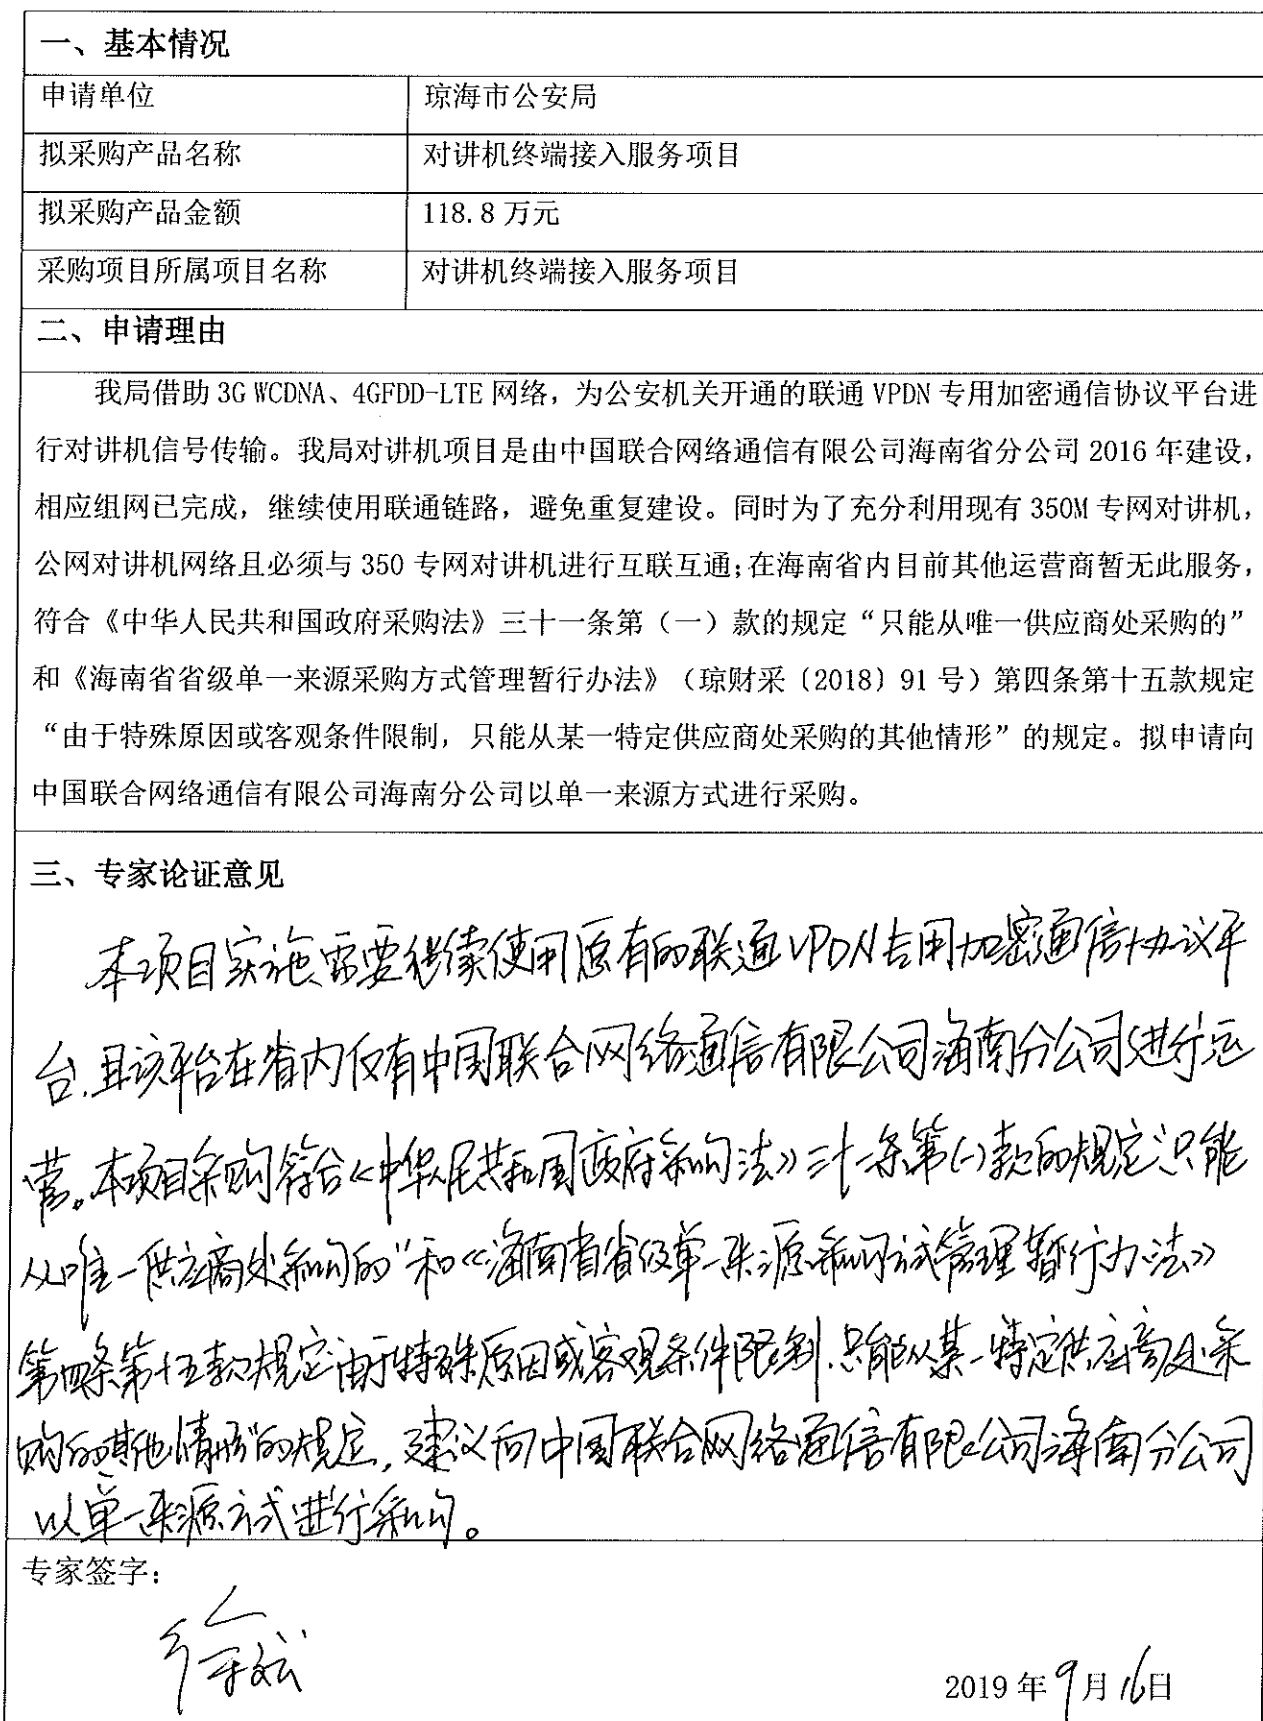 一、基本情况
申请单位 琼海市公安局
拟采购产品名称 对讲机终端接入服务项目
拟采购产品金额 118.8 万元
采购项目所属项目名称 对讲机终端接入服务项目
二、申请理由
我局借助 3G WCDNA、4GFDD-LTE 网络，为公安机关开通的联通 VPDN 专用加密通信协议平台进
行对讲机信号传输。我局对讲机项目是由中国联合网络通信有限公司海南省分公司 2016 年建设，
相应组网已完成，继续使用联通链路，避免重复建设。同时为了充分利用现有 350M 专网对讲机，
公网对讲机网络且必须与 350 专网对讲机进行互联互通；在海南省内目前其他运营商暂无此服务，
符合《中华人民共和国政府采购法》三十一条第（一）款的规定“只能从唯一供应商处采购的”
和《海南省省级单一来源采购方式管理暂行办法》（琼财采〔2018〕91 号）第四条第十五款规定
“由于特殊原因或客观条件限制，只能从某一特定供应商处采购的其他情形”的规定。拟申请向
中国联合网络通信有限公司海南分公司以单一来源方式进行采购。
三、专家论证意见
本项目实施需要继续使用原有的联通VPDN专用加密通信协议平
台.且该平台在省内仅有中国联合网络通信有限公司海南分公司进行运
营。本项目采购符合《中华人民共和国政府采购法》三十一条第(一)款的规定“只能
从唯一供应商处采购的”和《海南省省级单一来源采购方式管理暂行办法》
第四条第十五款规定“由于特殊原因或客观条件限制.只能从某一特定供应商处采
购的其他情形”的规定,建议向中国联合网络通信有限公司海南分公司
以单一来源方式进行采购。
专家签字：
徐斌
2019 年 9 月 16 日